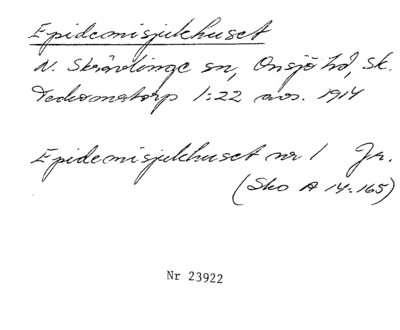 Epidemisjukhuset
N. Skrävlinge sn, Onsjö hd, Sk.
Teckomatorp 1:22 avs. 1914
Epidemisjukhuset nr 1 Jr.
(Sko A 14:165)
Nr 23922